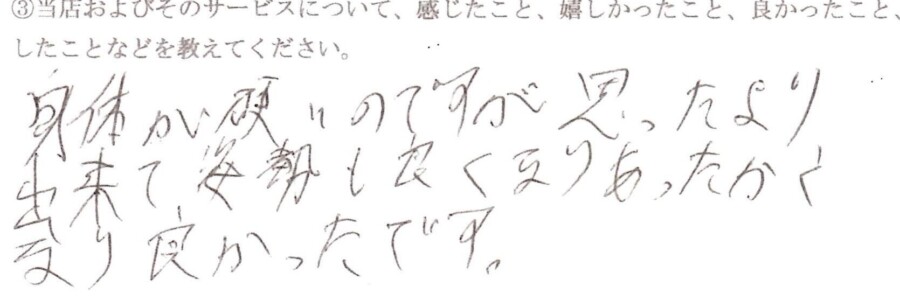 ③当店およびそのサービスについて、感じたこと、嬉しかったこと、良かったこと、
したことなどを教えてください。
身体が硬いのですが思ったより
出来て姿勢も良くなりあったかく
なり良かったです。